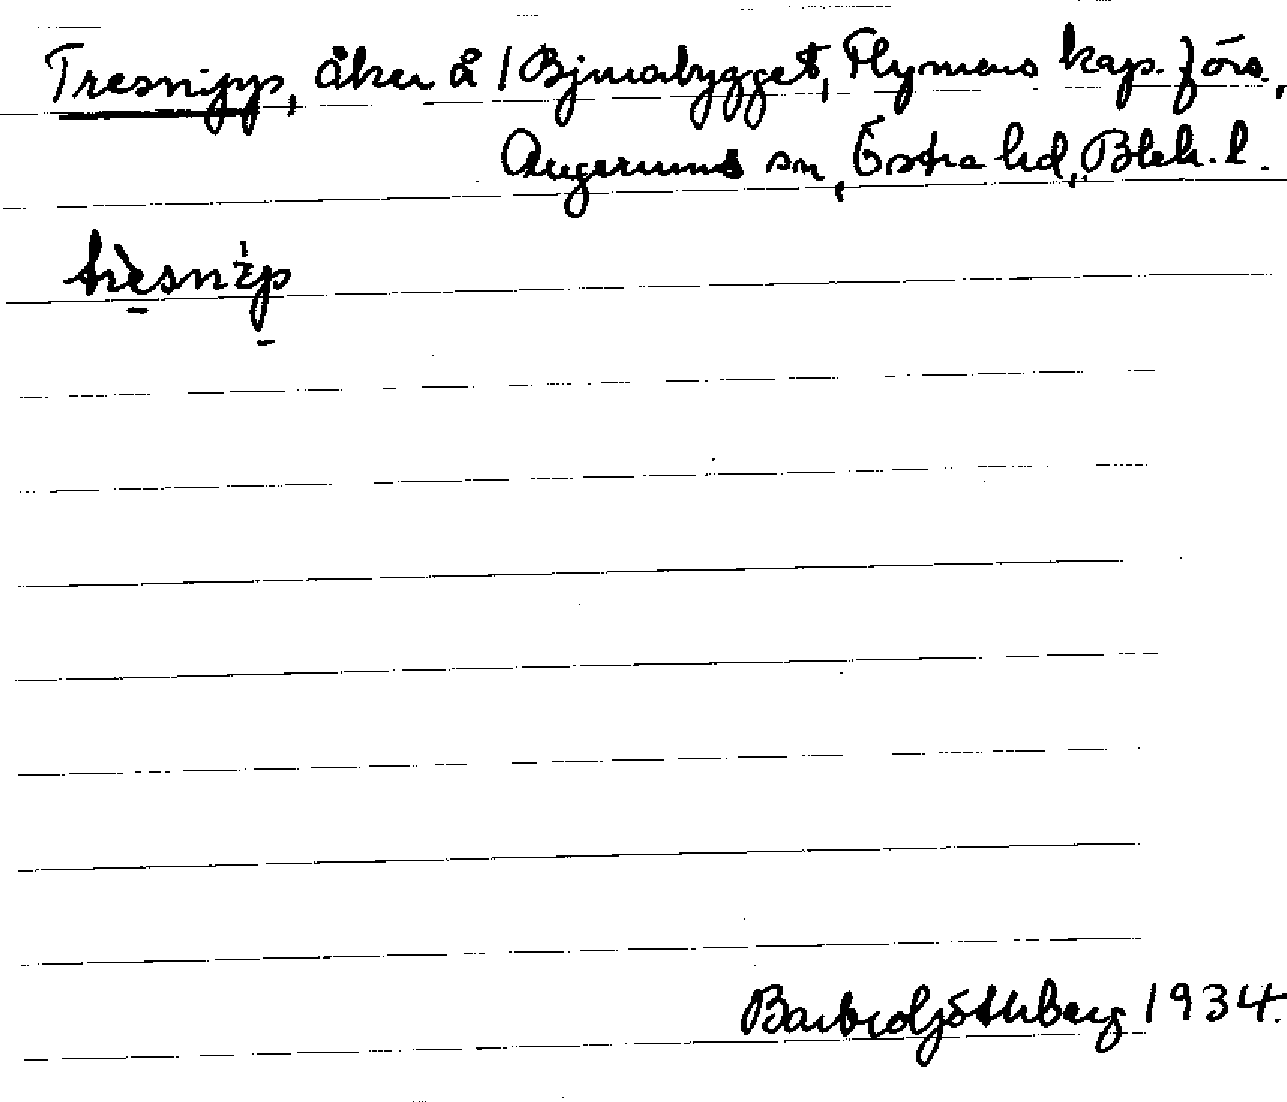 Tresnipp, åker å 1 Bjurabygget, Flymens kap. förs.,
Augerums sn, Östra hd, Blek. l.
trèsnìp
Barbro Göthberg 1934.